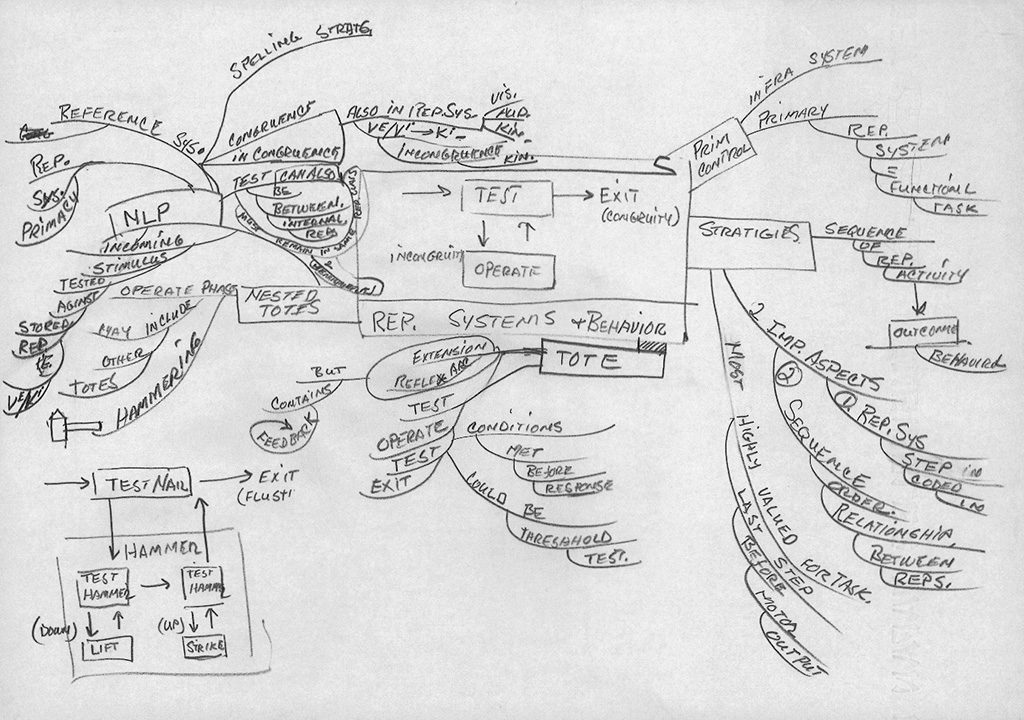 SPELLING STRATG
REFERENCE
SYS.
REP.
SYS.
PRIMACY
CONGRUENCE
IN CONGRUENCE
ALSO IN 1 REP. SYS.
VIS.
AUD.
KIN.
VE/Vi → Ki-
INCONGRUENCE KIN.
TEST CAN ALSO
BE
BETWEEN
INTERNAL
REPS
MUST REMAIN IN SAME REP. SYS
NLP
INCOMING
STIMULUS
TESTED
AGAINST
STORED
REP.
IE.
VE/Vi
NESTED
TOTES
OPERATE PHASE
MAY INCLUDE
OTHER
TOTES
HAMMERING
TEST
EXIT
(CONGRUITY)
INCONGRUITY
OPERATE
REP. SYSTEMS + BEHAVIOR
TOTE
EXTENSION
REFLEX ARC
BUT
CONTAINS
FEEDBACK
TEST
OPERATE
TEST
EXIT
CONDITIONS
MET
BEFORE
RESPONSE
COULD BE
THRESHHOLD
TEST.
PRIM
CONTROL
INFRA SYSTEM
PRIMARY
REP.
SYSTEM
=
FUNCTIONL
TASK
STRATIGIES
SEQUENCE
OF
REP.
ACTIVITY
OUTCOME
BEHAVIORL
2 IMP. ASPECTS
1. REP. SYS
STEP IN
CODED IN
2
SEQUENCE
ORDER.
RELATIONSHIP
BETWEEN
REPS.
MOST HIGHLY VALUED FOR TASK.
LAST STEP
BEFORE
MOTOR
OUTPUT
TEST NAIL
EXIT
(FLUSH)
HAMMER
TEST
HAMMER
TEST
HAMMER
(DOWN)
LIFT
(UP)
STRIKE